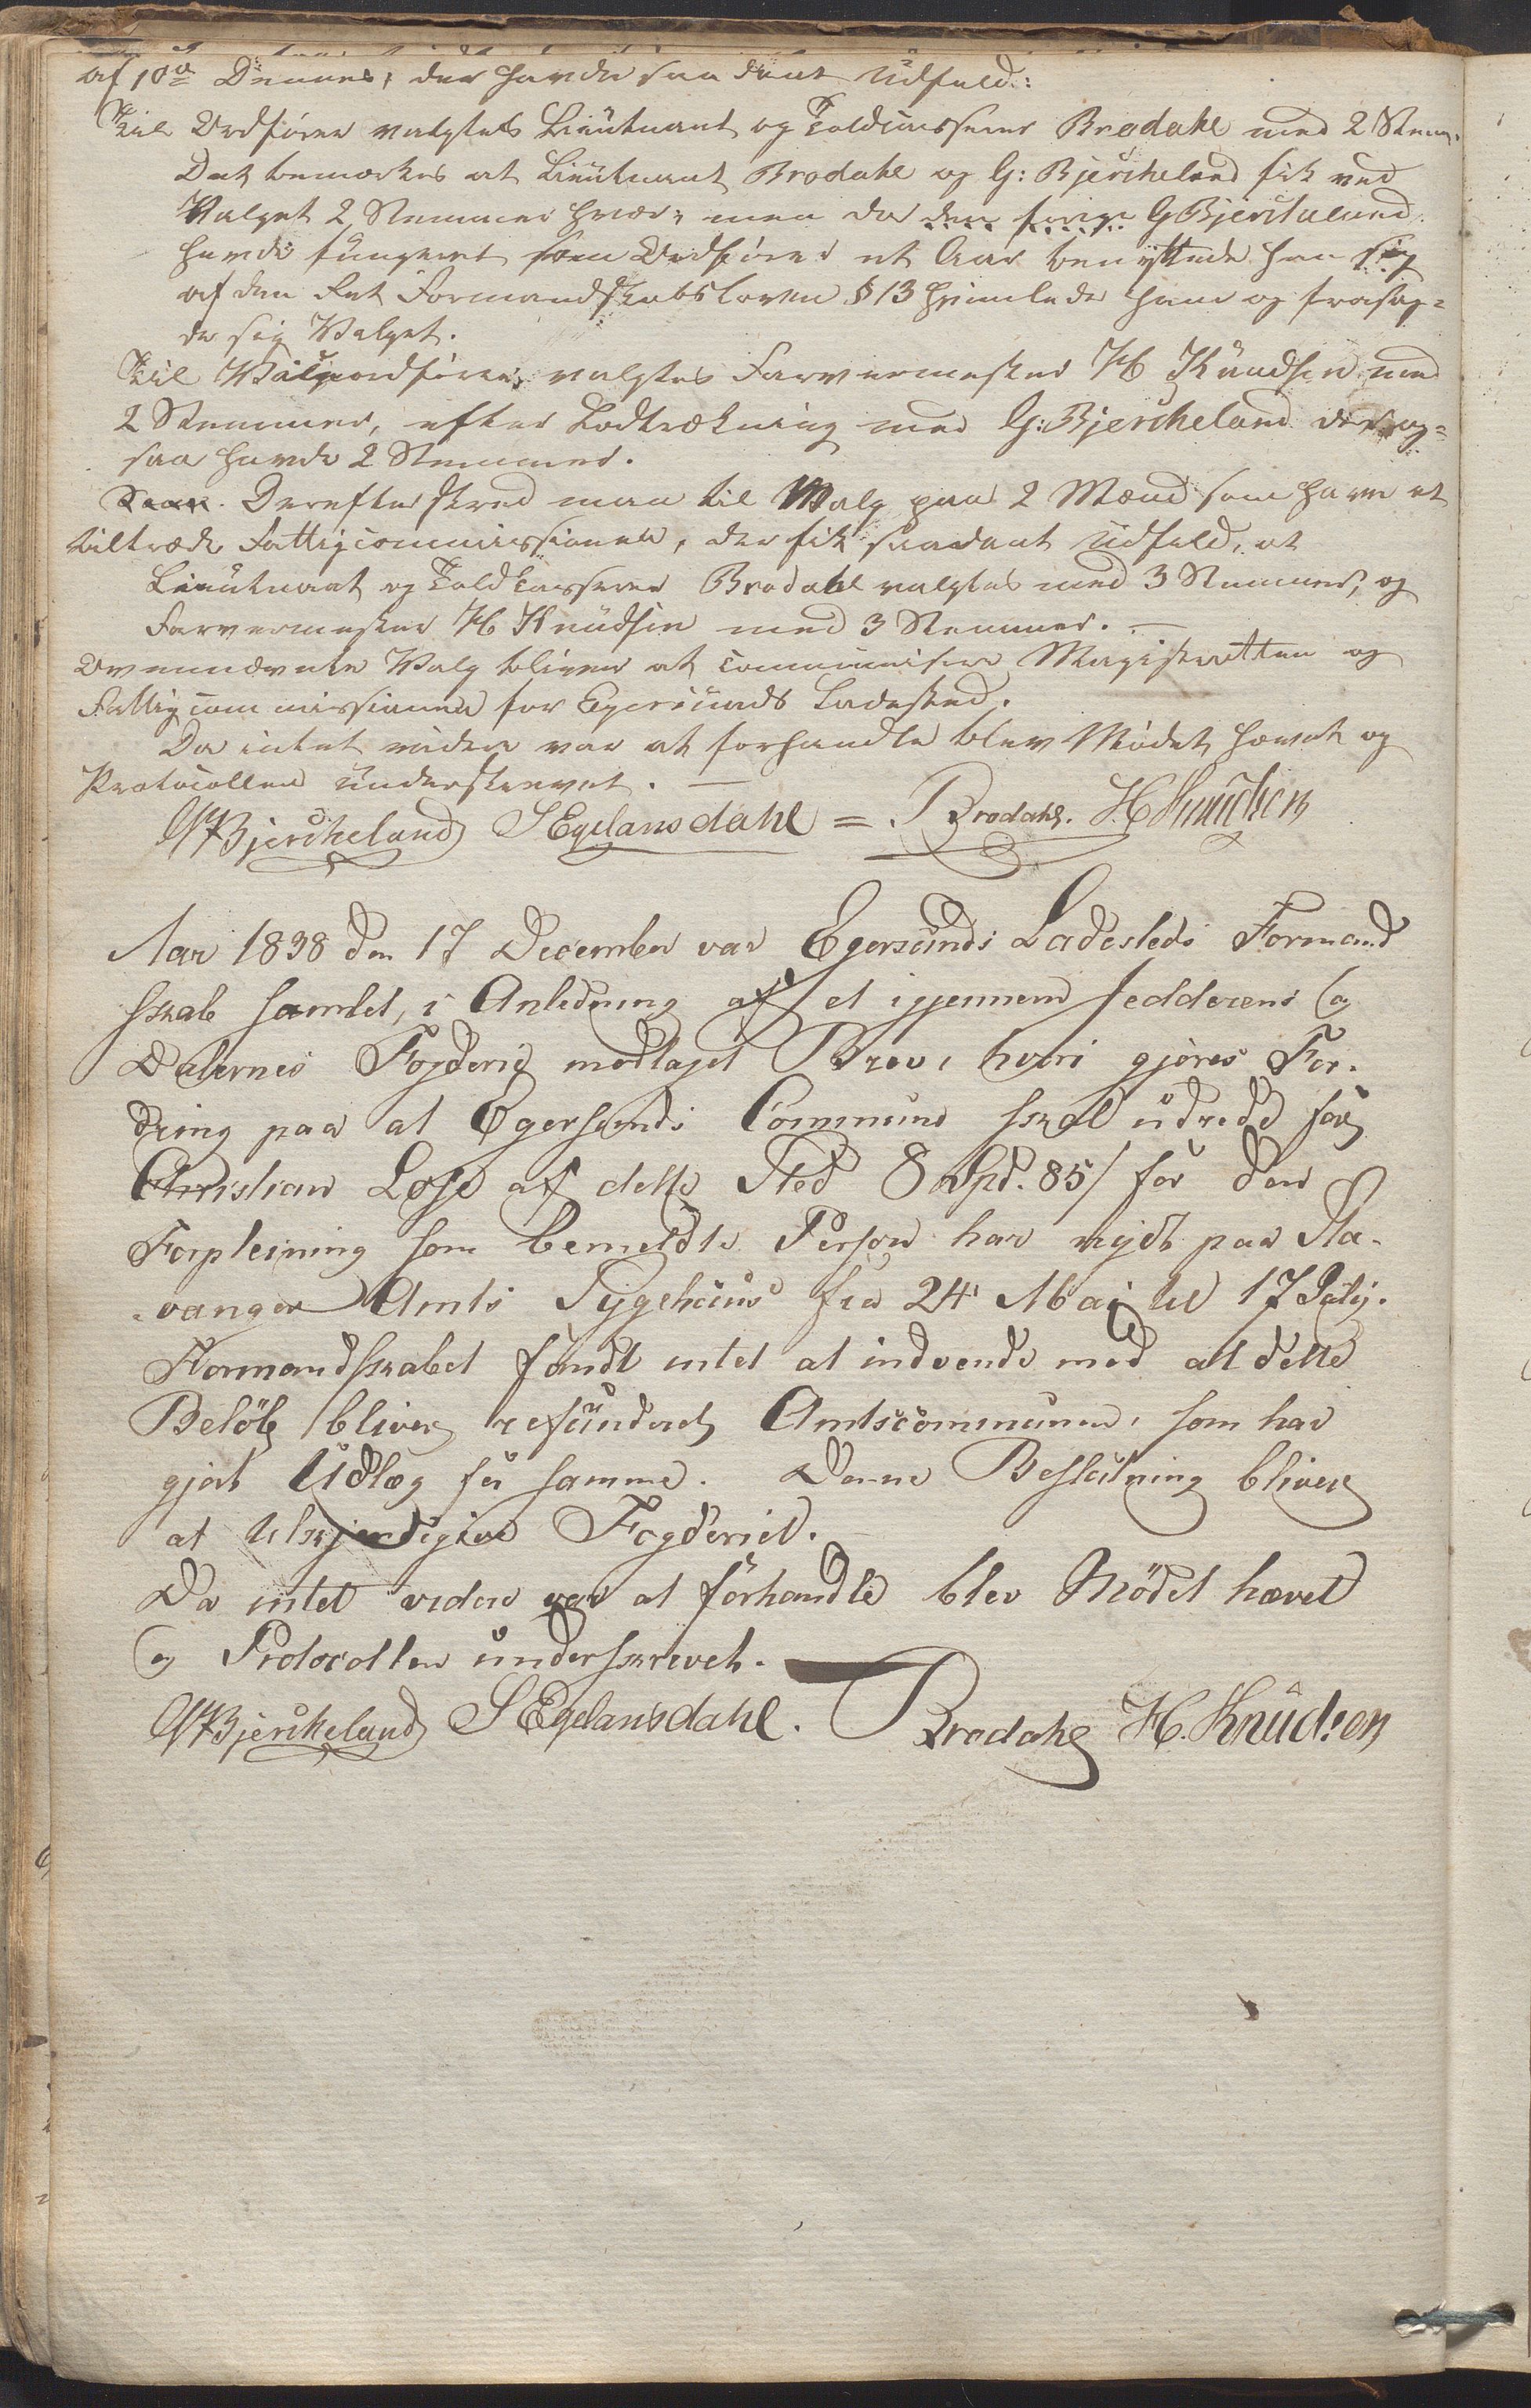 af 10de Dennes, der havde saadant Udfald:
Til Ordfører valgtes Lieutnant og Toldcasserer Brodahl med 2 Stem.
Det bemærkes at Lieutnant Brodahl og G: Bjerckeland fik ved
Valget 2 Stemmer hver, men da den forige G Bjerckeland
havde fungeret som Ordfører et Aar benyttede han sig
af den Ret Formandskabsloven § 13 hjemlede ham og frasag-
de sig Valget.
Til Viceordfører valgtes Farvermester H Knudsen med
2 Stemmer, efter Lodtrækning med G: Bjerckeland der og-
saa havde 2 Stemmer.
Derefter skred man til Valg paa 2 Mænd som have at
tiltræde Fattigcommissionen, der fik saadant Udfald, at
Lieutnant og Toldcasserer Brodahl valgtes med 3 Stemmer, og
Farvermester H Knudsen med 3 Stemmer. —
Ovennævnte Valg bliver at communisere Magistratten og
Fattigcommissionen for Egersunds Ladested.
Da intet videre var at forhandle blev Mödet hævet og
Protocollen underskrevet. —
G Bjerckeland S Egelandsdahl = Brodahl. H Knudsen
Aar 1838 den 17 December var Egersunds Ladesteds Formand
skab samlet, i Anledning af et igjennem Jedderens og
Dalernes Fogderie modtaget Brev, hvori gjöres For-
dring paa at Egersunds Commune skal udrede for
Christian Lose af dette Sted 8 Spd. 85 / for den
Forpleining som bemeldte Person har nydt paa Sta-
vanger Amts Sygehuus fra 24 Mai til 17 July.
Formandskabet fandt intet at indvende mod at dette
Belöb bliver refunderet Amtscommunen, som har
gjort Udlæg for samme. Denne Beslutning bliver
at tilkjendegive Fogderiet.
Da intet videre var at forhandle blev Mödet hævet
og Protocollen underskrevet.
G Bjerckeland S Egelandsdahl. Brodahl H. Knudsen